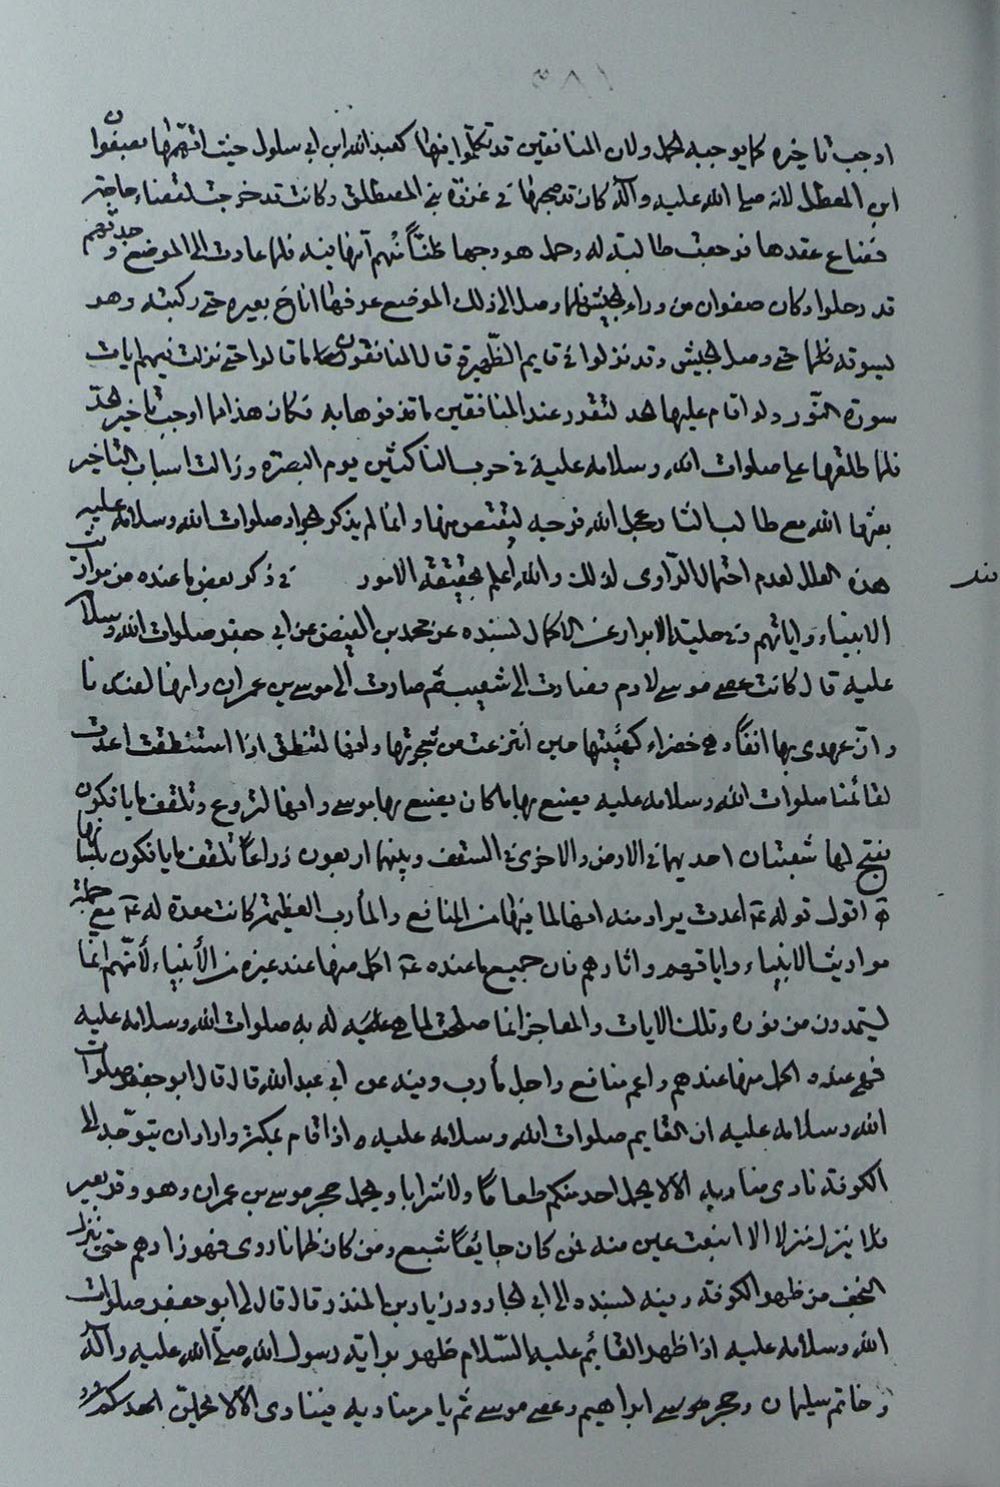 ١٨٣
اوجب تاخيره كما يوجبه الحمل ولان المنافقين قد تكلموا فيها كعبد الله ابن ابي سلول حيث اتهمها بصفوان
ابن المعطل لانه صلى الله عليه وآله كان قد صحبها في غزوة بني المصطلق وكانت قد خرجت لقضاء حاجة
فضاع عقدها فرجعت طالبة له وحمل هودجها ظنّاً منهم أنها فيه فلما عادت الى الموضع وجدتهم
قد رحلوا وكان صفوان من وراء الجيش فلما وصل الى ذلك الموضع عرفها اناخ بعيره حتى ركبته وهو
يسوقه فلما حتى وصل الجيش وقد نزلوا في قايم الظّهيرة قال المنافقون ما قالوا حتى نزلت فيهم ايات
سورة النّور ولو اقام عليها الحد لتقرر عند المنافقين ما قذفوها به فكان هذا مما اوجب تاخير الحدّ
فلما طلقها علي صلوات الله وسلامه عليه في حرب الناكثين يوم البصرة وزالت اسباب التاخير
بعثها الله مع طالب الثار عجل الله فرجه ليقتص منها وانما لم يذكر الجواد صلوات الله وسلامه عليه
هذه العلل لعدم احتمال الرّاوي لذلك والله أعلم بحقيقة الامور في ذكر بعض ما عنده من مواريث
الانبياء واياتهم وفي حلية الابرار عن الاكمال بسنده عن محمد بن الفيض عن ابي جعفر صلوات الله وسلامه
عليه قال كانت عصى موسى لادم فصارت الى شعيب ثم صارت الى موسى بن عمران وانها لعندنا
وانّ عهدي بها انفاً وهي خضراء كهيئتها حين انتزعت من شجرتها وانها لتنطق اذا استنطقت اعدت
لقائمنا صلوات الله وسلامه عليه يصنع بها ما كان يصنع بها موسى وانها لتروع وتلقف ما يافكون
يفتح لها شعبتان احديهما في الارض والاخرى في السقف وبينهما اربعون ذراعاً تلقف ما يافكون بلسانها
اقول قوله ع اعدت يراد منه انها لما فيها من المنافع والمأرب العظيمة كانت معدة له ع مع جملة
مواريث الانبياء واياتهم واثارهم فان جميع ما عنده ع اكمل منها عند غيره من الأنبياء لأنّهم انما
يستمدون من نوره وتلك الايات والمعاجز انما صلحت لما هي عليه له به صلوات الله وسلامه عليه
فهي عنده اكمل منها عندهم واعم منافع واجل مأرب وفيه عن ابي عبد الله قال قال ابو جعفر صلوات
الله وسلامه عليه ان القايم صلوات الله وسلامه عليه اذا قام بمكة واراد ان يتوجّه الى
الكوفة نادى مناديه الا لا يحمل احد منكم طعاما ولا شرابا ويحمل حجر موسى بن عمران وهو وقر بعير
فلا ينزل منزلا الا انبعث عين منه فمن كان جايعاً شبع ومن كان ظمانا روى فهو زادهم حتى ينزل
النجف من ظهر الكوفة وفيه بسنده الى ابي الجارود زياد بن المنذر قال قال لي ابو جعفر صلوات
الله وسلامه عليه اذا ظهر القائم عليه السّلام ظهر براية رسول الله صلى الله عليه وآله
وخاتم سليمان وحجر موسى وعصى موسى ثم يامر مناديه فينادي الا لا يحملن احدكم